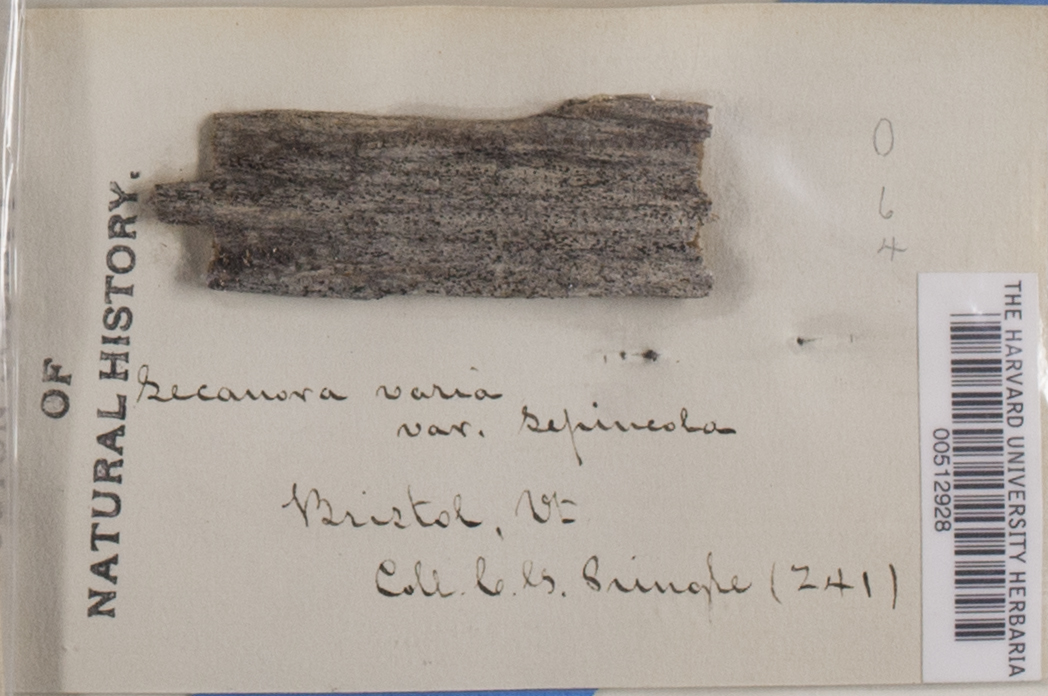 OF
NATURAL HISTORY.
Lecanora varia
var. sepincola
Bristol, Vt
Coll. C. G. Pringle (241)
0 6 4
THE HARVARD UNIVERSITY HERBARIA
00512928